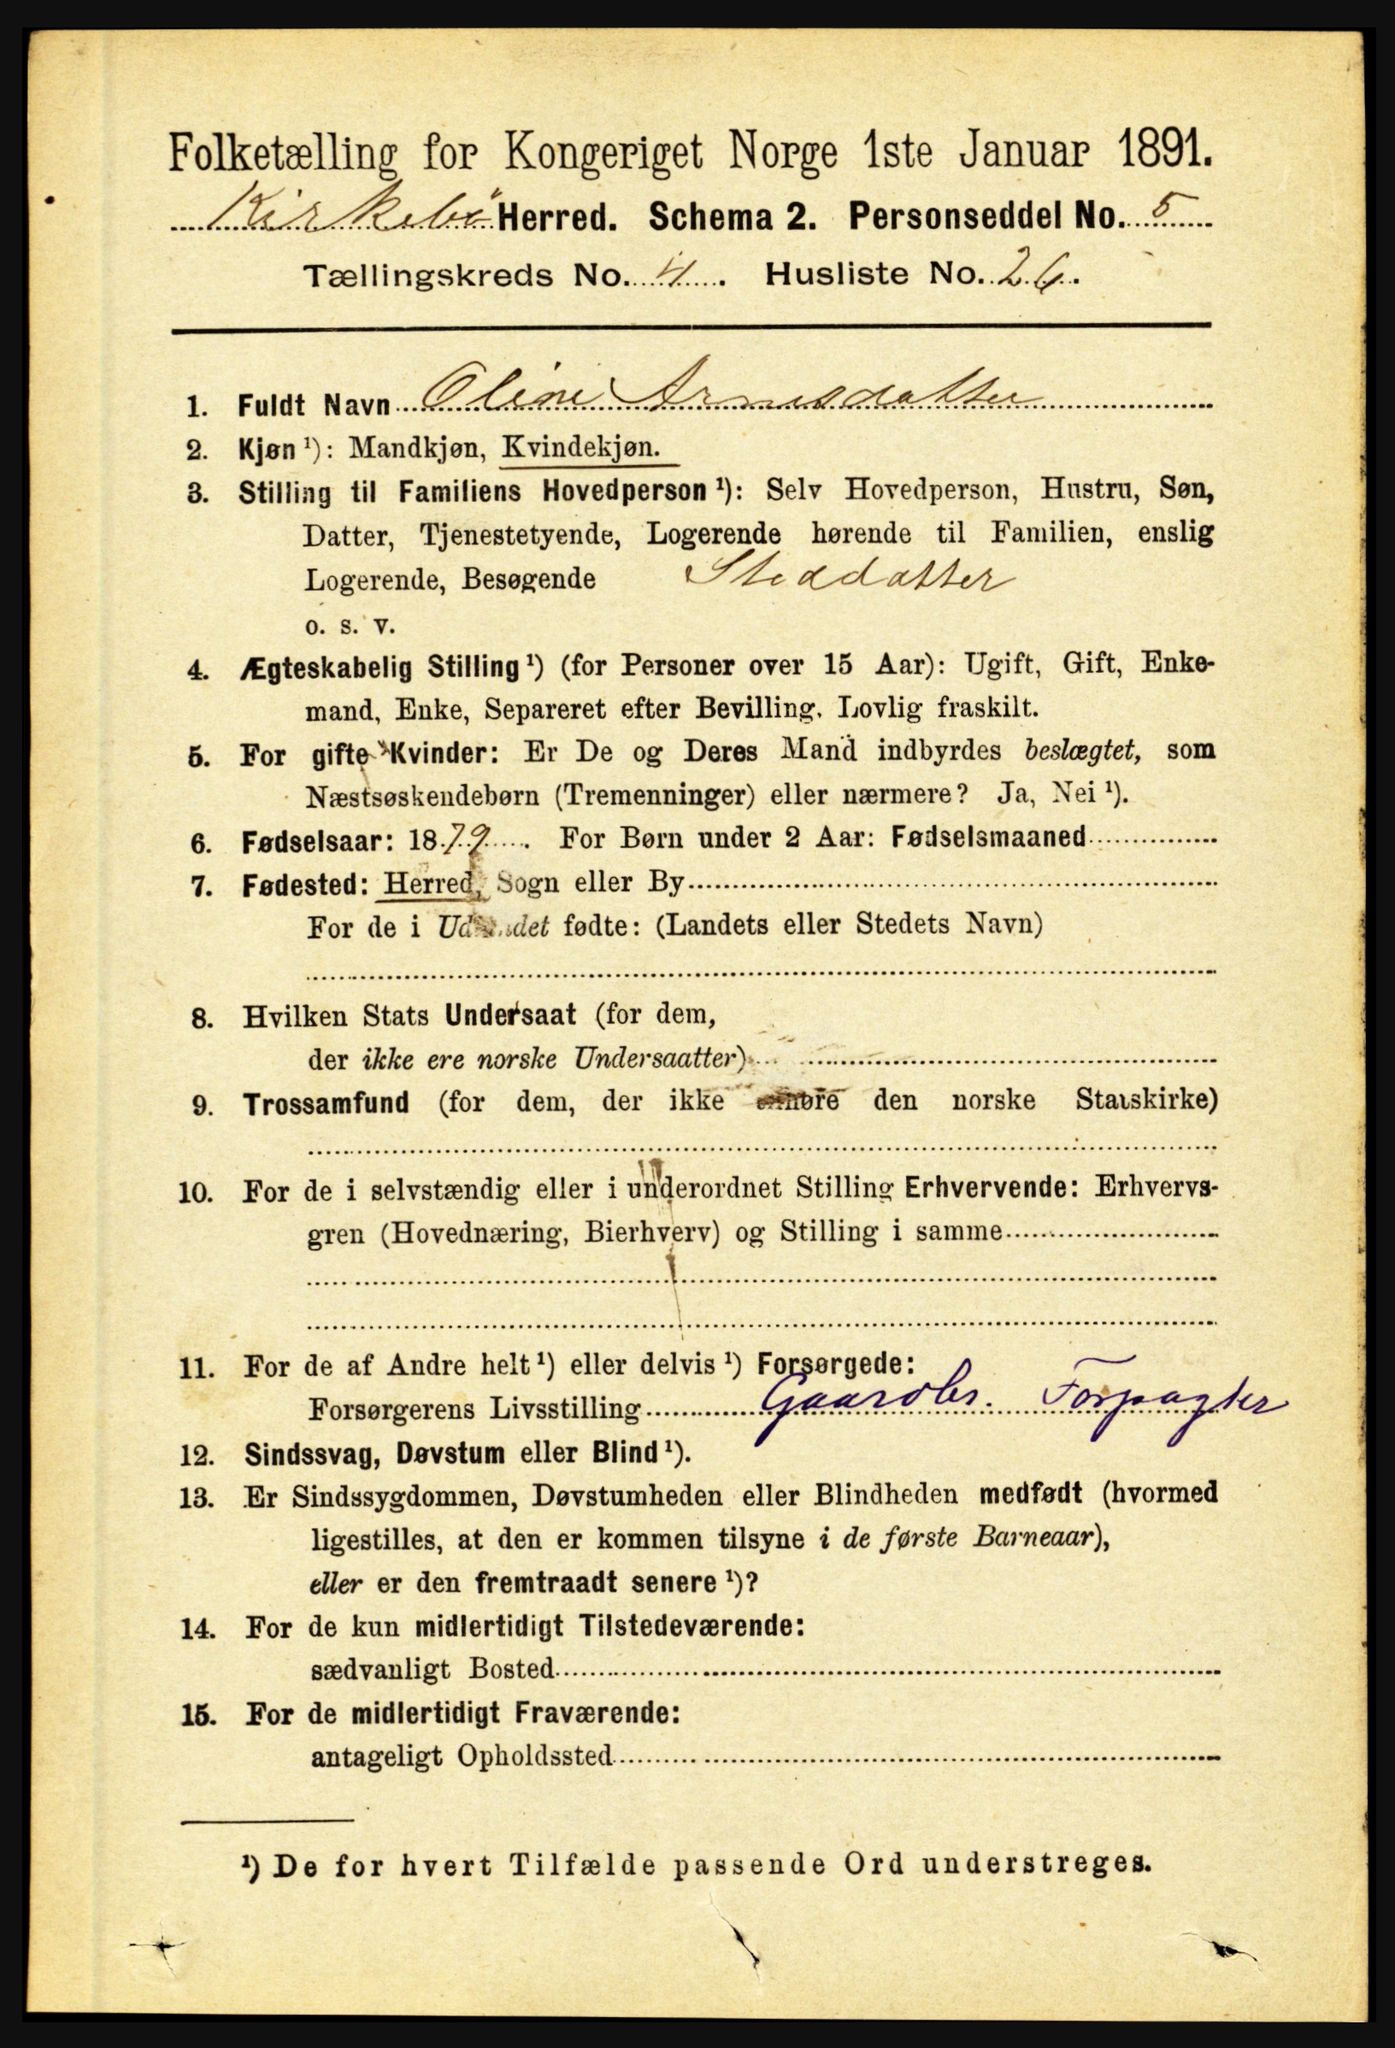 Folketælling for Kongeriget Norge 1ste Januar 1891.
Kirkebö Herred. Schema 2. Personseddel No. 5
Tællingskreds No. 4. Husliste No. 26.
1. Fuldt Navn Oline Arnesdatter
2. Kjøn ¹): Mandkjøn, Kvindekjøn.
3. Stilling til Familiens Hovedperson ¹): Selv Hovedperson, Hustru, Søn,
Datter, Tjenestetyende, Logerende hørende til Familien, enslig
Logerende, Besøgende Steddatter
o. s. v.
4. Ægteskabelig Stilling ¹) (for Personer over 15 Aar): Ugift, Gift, Enke-
mand, Enke, Separeret efter Bevilling. Lovlig fraskilt.
5. For gifte Kvinder: Er De og Deres Mand indbyrdes beslægtet, som
Næstsøskendebørn (Tremenninger) eller nærmere? Ja, Nei ¹).
6. Fødselsaar: 1879. For Børn under 2 Aar: Fødselsmaaned
7. Fødested: Herred, Sogn eller By
For de i Udlandet fødte: (Landets eller Stedets Navn)
8. Hvilken Stats Undersaat (for dem,
der ikke ere norske Undersaatter)
9. Trossamfund (for dem, der ikke tilhøre den norske Statskirke)
10. For de i selvstændig eller i underordnet Stilling Erhvervende: Erhvervs-
gren (Hovednæring, Bierhverv) og Stilling i samme
11. For de af Andre helt ¹) eller delvis ¹) Forsørgede:
Forsørgerens Livsstilling Gaardbr. Forpagter
12. Sindssvag, Døvstum eller Blind ¹).
13. Er Sindssygdommen, Døvstumheden eller Blindheden medfødt (hvormed
ligestilles, at den er kommen tilsyne i de første Barneaar),
eller er den fremtraadt senere ¹)?
14. For de kun midlertidigt Tilstedeværende:
sædvanligt Bosted
15. For de midlertidigt Fraværende:
antageligt Opholdssted
¹) De for hvert Tilfælde passende Ord understreges.